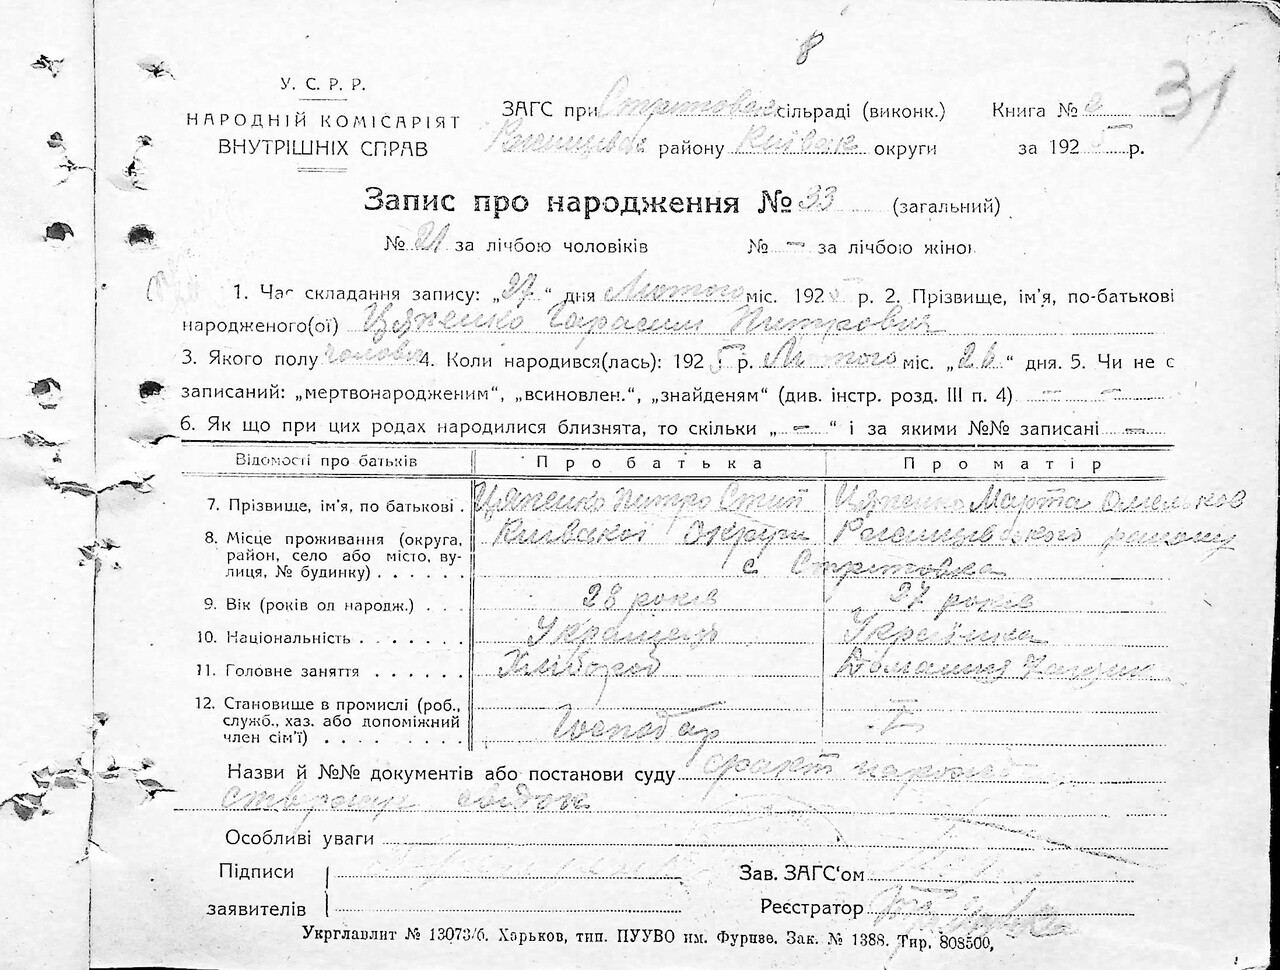 8
31
У. С. Р. Р.
НАРОДНІЙ КОМІСАРІЯТ
ВНУТРІШНІХ СПРАВ
ЗАГС при Стритовск сільраді (виконк.) Книга №
району Київськ округи за 1925 р.
Запис про народження № 33 (загальний)
№ 21 за лічбою чоловіків № — за лічбою жіно
1. Час складання запису: „27“ дня Лютого міс. 1925 р. 2. Прізвище, ім'я, по-батькові
народженого(ої) Цяпенко Гарасим Питрович
3. Якого полу чолові 4. Коли народився(лась): 1925 р. Лютого міс. „26“ дня. 5. Чи не є
записаний: „мертвонародженим“, „всиновлен.“, „знайденям“ (див. інстр. розд. III п. 4) — —
6. Як що при цих родах народилися близнята, то скільки „—“ і за якими №№ записані —
Відомості про батьків Про батька Про матір
7. Прізвище, ім'я, по батькові . Цяпенко Питро Стип Цяпенко Марта Омельков
8. Місце проживання (округа, Київської Округи району
район, село або місто, ву- с Стритовка
лиця, № будинку) . . . . . .
9. Вік (років од народж.) . . . 28 років 27 років
10. Національність . . . . . . Українець Українка
11. Головне заняття . . . . . . Хлібороб Домашня
12. Становище в промислі (роб.,
служб., хаз. або допоміжний
член сім'ї) . . . . . . . . . Господар
Назви й №№ документів або постанови суду факт народж
свідок
Особливі уваги
Підписи Зав. ЗАГС'ом
заявителів Реєстратор
Укрглавліт № 13073/б. Харьков, тип. ПУУВО им. Фрунзе. Зак. № 1388. Тир. 808500,